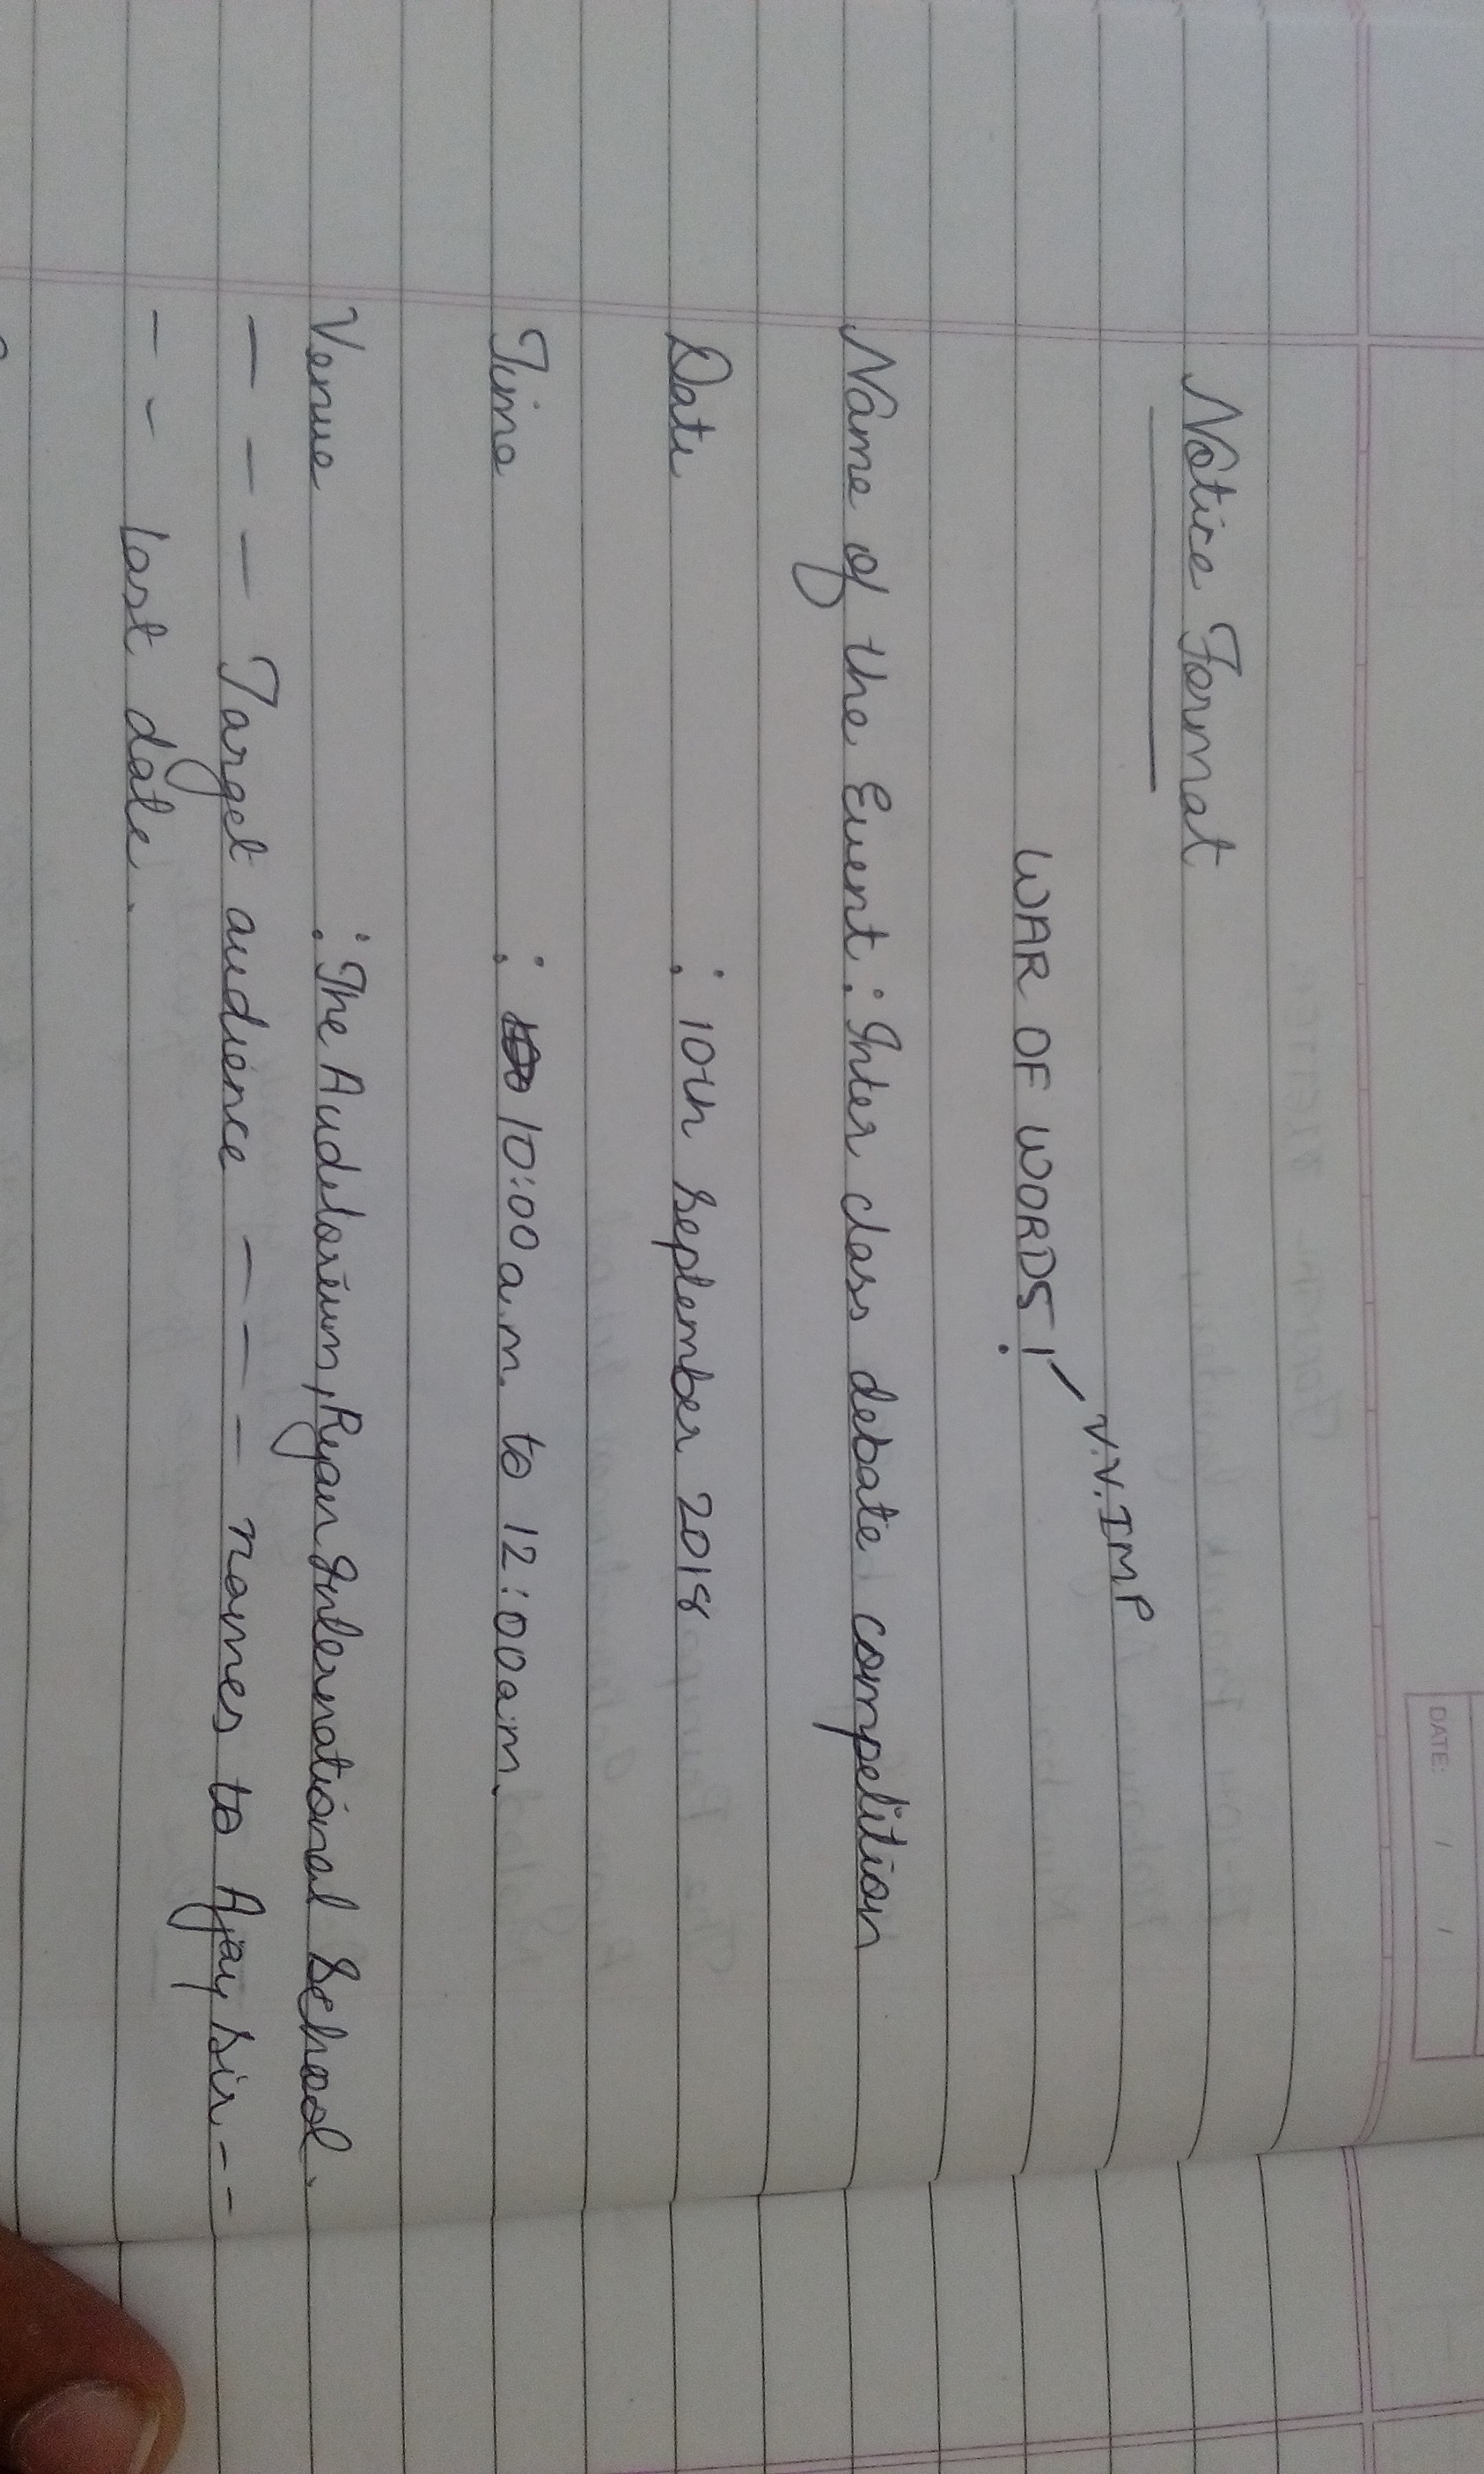 DATE: / /
Notice Format
V.V.IMP
WAR OF WORDS!
Name of the Event : Inter class debate competition
Date : 10th September 2018
Time : 10:00a.m. to 12:00a.m.
Venue : The Auditorium, Ryan International School.
— — — Target audience — — — names to Ajay Sir - -
- - last date.